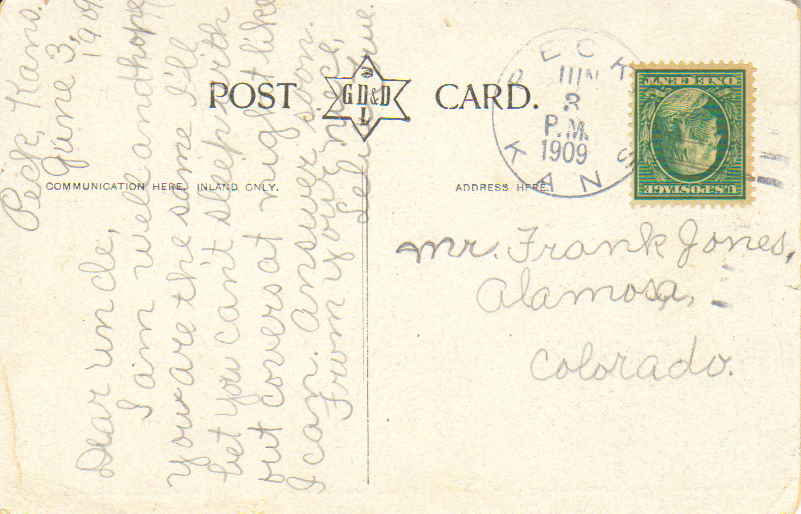 POST CARD.
GD&D
L
COMMUNICATION HERE, INLAND ONLY.
ADDRESS HERE.
PECK
JUN
3
P.M.
1909
KANS
ONE CENT
U.S. POSTAGE
Peck, Kans.
June 3,
1909.
Dear uncle,
I am well and hope
you are the same I'll
bet you can't sleep with
out covers at night like
I can. Answer soon.
From your niece,
Mr. Frank Jones,
Alamosa,
Colorado.